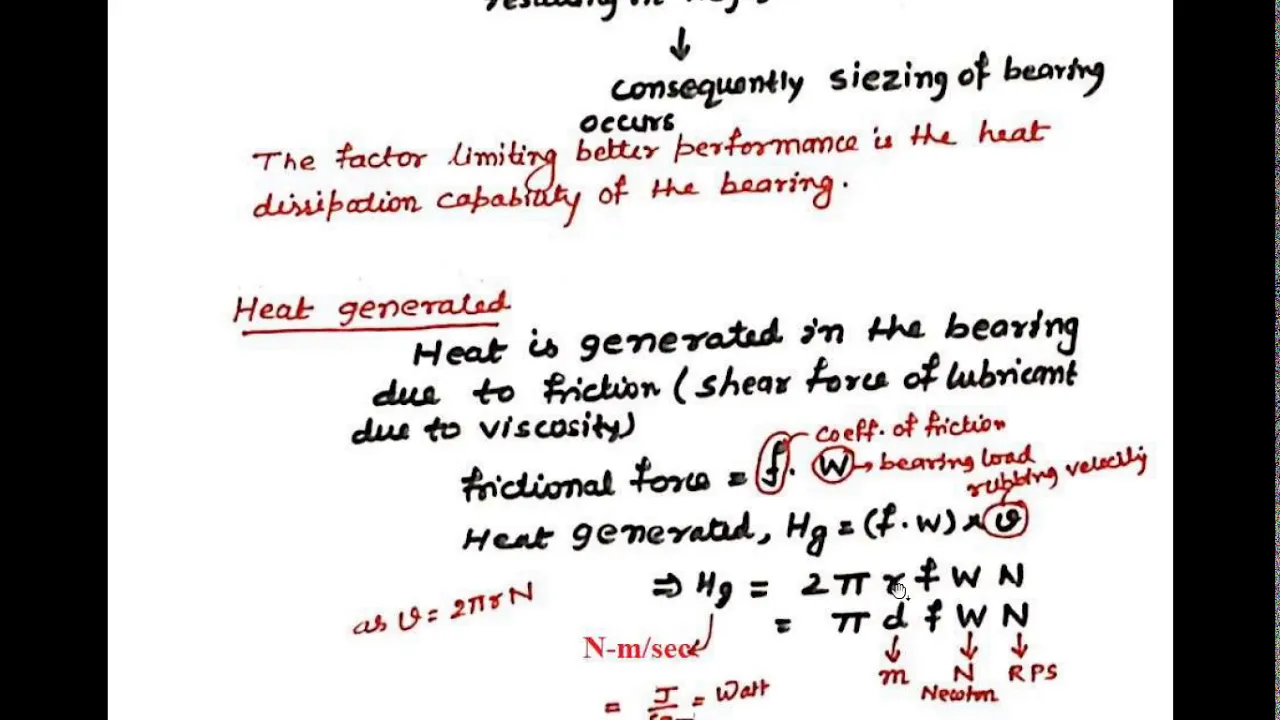 resulting in
↓
consequently siezing of bearing
occurs
The factor limiting better performance is the heat
dissipation capability of the bearing.
Heat generated
Heat is generated in the bearing
due to friction (shear force of lubricant
due to viscosity)
coeff. of friction
frictional force = f. W → bearing load
rubbing velocity
Heat generated, Hg = (f.W) × v
⇒ Hg = 2πr f W N
as v = 2πrN
= π d f W N
N-m/sec
m N RPS
Newton
= J/sec = Watt